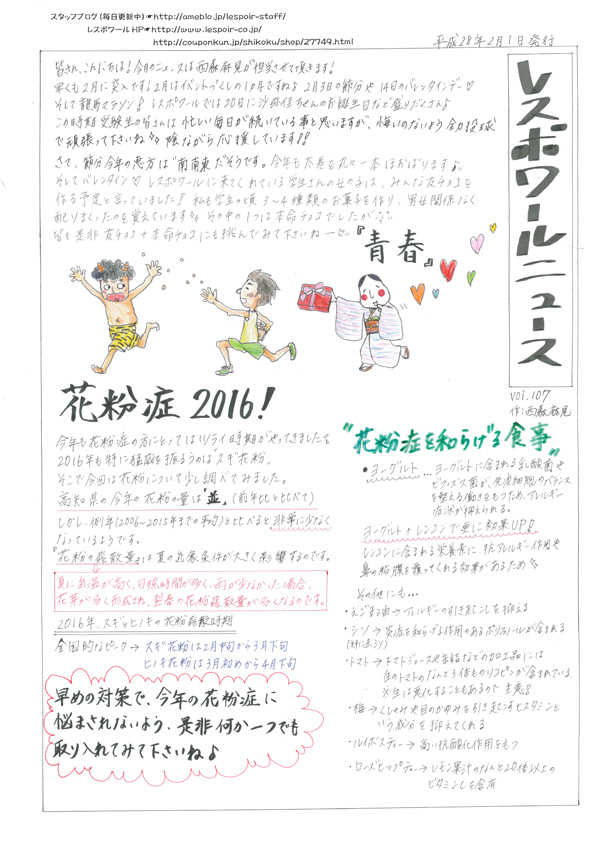 スタッフブログ(毎日更新中)☛http://ameblo.jp/lespoir-staff/
レスポワールHP☛http://www.lespoir-co.jp/
http://couponkun.jp/shikoku/shop/27749.html
平成28年2月1日発行
レスポワールニュース
vol.107
作:西森麻見
皆さん、こんにちは!今月のニュースは西森麻見が担当させて頂きます!
早くも2月に突入です!2月はイベントづくしの1カ月ですね♪2月3日の節分や14日のバレンタインデー♡
そして龍馬マラソン♪レスポワールでは20日に沙弥佳ちゃんのお誕生日など盛りだくさん♪
この時期受験生の皆さんは忙しい毎日が続いている事と思いますが、悔いのないよう全力投球
で頑張って下さいね 陰ながら応援しています!!
さて、節分今年の恵方は"南南東"だそうです。今年も太巻を丸々一本ほおばります♪
そしてバレンタイン♡レスポワールに来てくれている学生さんの女の子は、みんな友チョコを
作る予定と言っていました!私も学生の頃3~4種類のお菓子を作り、男女関係なく
配りまくったのを覚えています その中の1つは本命チョコでしたが…
皆も是非友チョコ+本命チョコにも挑んでみて下さいねー♡
『青春』
花粉症2016!
今年も花粉症の方にとってはツライ時期がやってきましたね
2016年も特に猛威を振るうのは"スギ花粉"。
そこで今回は花粉について少し調べてみました。
高知県の今年の花粉の量は"並"。(前年比と比べて)
しかし、例年(2006~2015年までの平均)と比べると非常に少なく
なっているようです。
『花粉の飛散量』は夏の気象条件が大きく影響するのです。
夏に気温が高く、日照時間が多く、雨が少なかった場合、
花芽が多く形成され、翌春の花粉飛散量が多くなるのです。
2016年、スギとヒノキの花粉飛散時期
全国的なピーク→スギ花粉は2月中旬から3月下旬
ヒノキ花粉は3月初めから4月下旬
早めの対策で、今年の花粉症に
悩まされないよう、是非何か一つでも
取り入れてみて下さいね♪
"花粉症を和らげる食事"
●ヨーグルト…ヨーグルトに含まれる乳酸菌や
ビフィズス菌が、免疫細胞のバランス
を整える働きをもつため、アレルギー
症状が抑えられる。
ヨーグルト+レンコンで更に効果UP♪
レンコンに含まれる栄養素に、抗アレルギー作用や
鼻の粘膜を護ってくれる効果があるため
その他にも…
・えごま油→アレルギーの引き起こしを抑える
・シソ→炎症を和らげる作用のあるポリフェノールが含まれる
(特に赤シソ)
・トマト→トマトジュースや缶詰などの加工品には
生のトマトのなんと3倍ものリコピンが含まれている
※生は悪化することもあるので注意!
・梅→くしゃみや目のかゆみを引き起こすヒスタミンと
いう成分を抑えてくれる
・ルイボスティー→高い抗酸化作用をもつ
・ローズヒップティー→レモン果汁のなんと20倍以上の
ビタミンCを含有